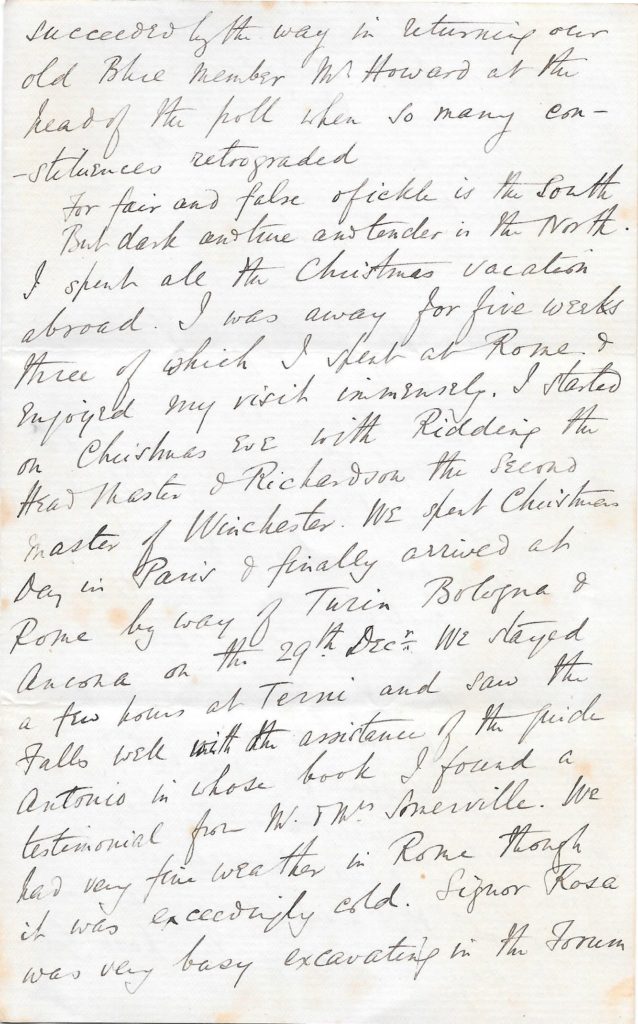 succeeded by the way in returning our
old Blue member Mr Howard at the
head of the poll when so many con-
-stituences retrograded
For fair and false & fickle is the South
But dark and true and tender is the North.
I spent all the Christmas vacation
abroad. I was away for five weeks
three of which I spent at Rome &
enjoyed my visit immensely. I started
on Christmas Eve with Ridding the
Head Master & Richardson the Second
master of Winchester. We spent Christmas
Day in Paris & finally arrived at
Rome by way of Turin Bologna &
Ancona on the 29th Decr. We stayed
a few hours at Terni and saw the
Falls well with the assistance of the guide
Antonio in whose book I found a
testimonial from Mr. & Mrs Somerville. We
had very fine weather in Rome though
it was exceedingly cold. Signor Rosa
was very busy excavating in the Forum